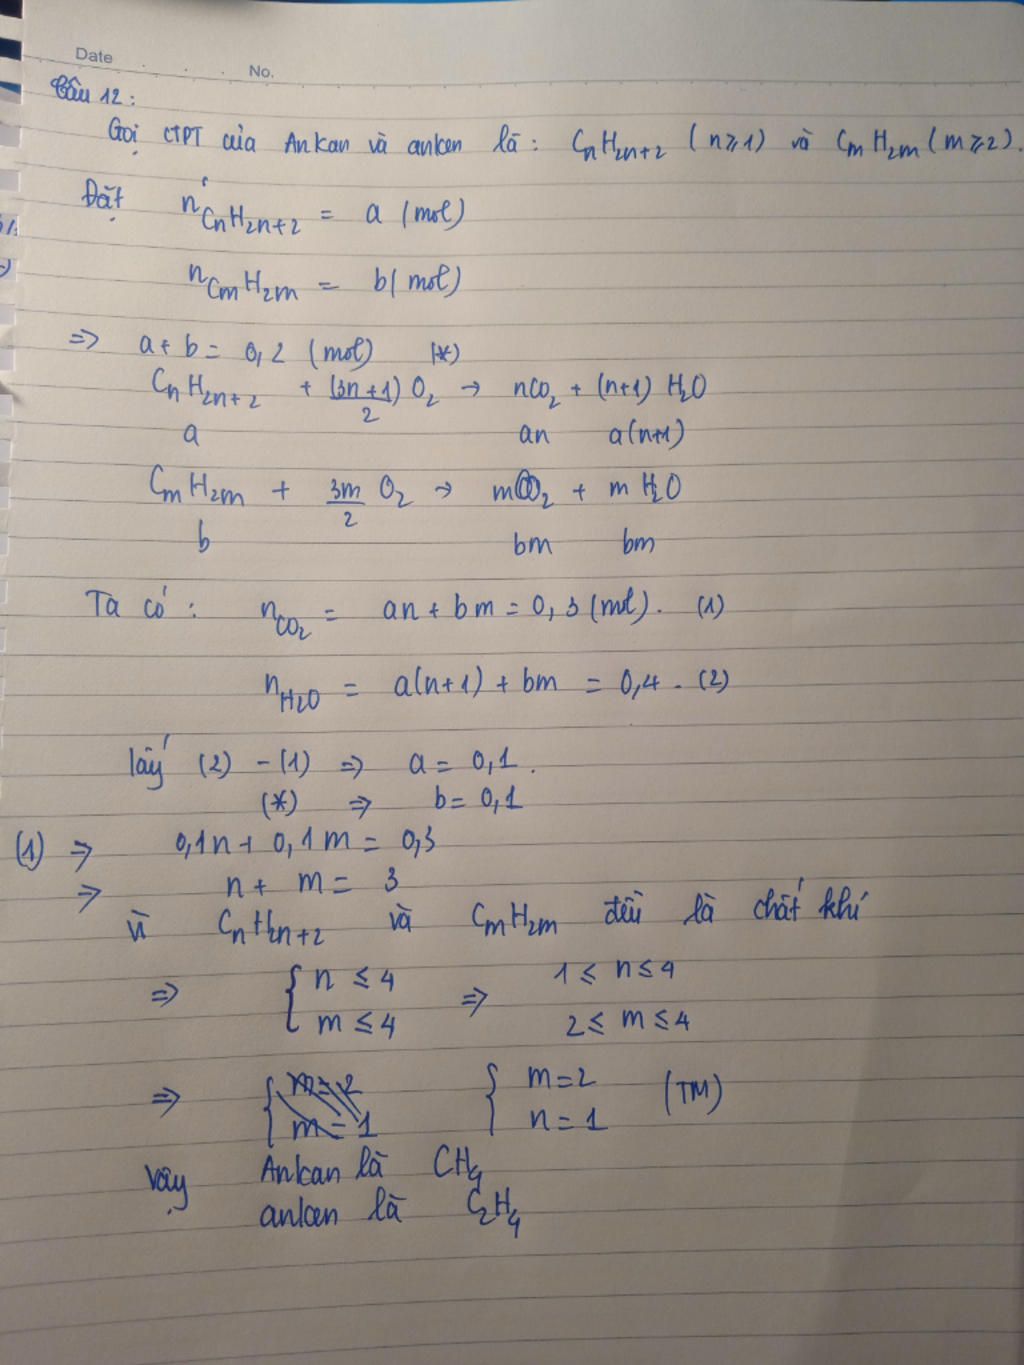 Date No.
Câu 12:
Gọi CTPT của Ankan và anken là: CnH2n+2 (n≥1) và CmH2m (m≥2).
Đặt nCnH2n+2 = a (mol)
nCmH2m = b (mol)
=> a+b = 0,2 (mol) (*)
CnH2n+2 + (3n+1)/2 O2 → nCO2 + (n+1) H2O
a an a(n+1)
CmH2m + 3m/2 O2 → mCO2 + m H2O
b bm bm
Ta có: nCO2 = an + bm = 0,3 (mol). (1)
nH2O = a(n+1) + bm = 0,4. (2)
lấy (2) - (1) => a = 0,1.
(*) => b = 0,1
(1) => 0,1n + 0,1m = 0,3
=> n + m = 3
Vì CnH2n+2 và CmH2m đều là chất khí
=> { n ≤ 4 => 1 ≤ n ≤ 4
m ≤ 4 2 ≤ m ≤ 4
=> { m = 2 { m = 2 (TM)
m = 1 n = 1
Vậy Ankan là CH4
anken là C2H4